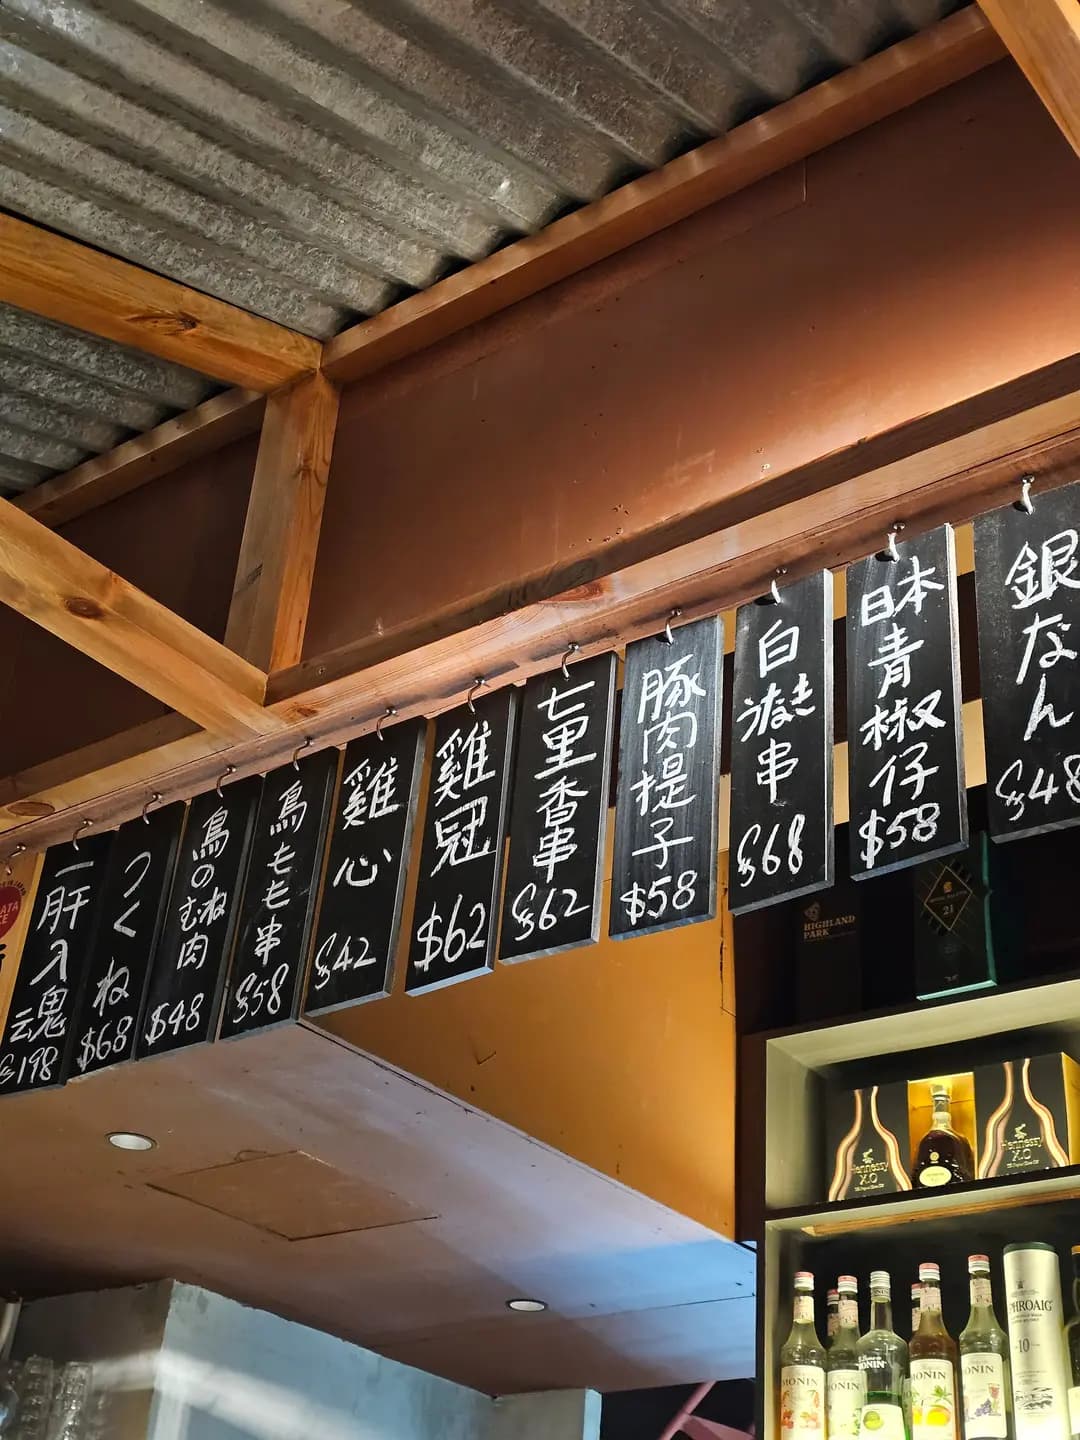 一肝入魂
$198
つくね
$68
鳥のむね肉
$48
鳥もも串
$58
雞心
$42
雞冠
$62
七里香串
$62
豚肉提子
$58
白鰻串
$68
日本青椒仔
$58
銀なん
$48
HIGHLAND
PARK
21
Hennessy
X.O
Hennessy
X.O
MONIN
MONIN
MONIN
MONIN
MONIN
PHROAIG
10